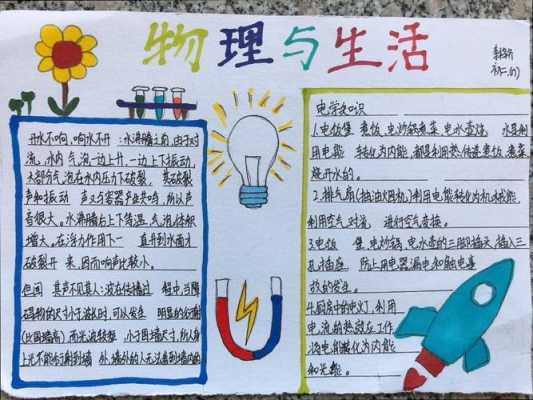 物理与生活
初二(1)
开水不响,响水不开:水沸腾之前,由于对
流,水内气泡一边上升,一边上下振动,
大部分气泡在水内压力下破裂,其破裂
声和振动声又与容器产生共鸣,所以声
音很大。水沸腾后上下等温,气泡体积
增大,在浮力作用下一直升到水面才
破裂开来,因而响声比较小。
但闻其声不见其人:波在传播过程中,当障
碍物的尺寸小于波长时,可以发生明显的衍射
电学知识
1.电饭煲煮饭,电炒锅煮菜,电水壶烧水是利
用电能转化为内能,都是利用热传递煮饭,煮菜
烧开水的。
2.排气扇(抽油烟机)利用电能转化为机械能,
利用空气对流进行空气变换。
3.电饭煲,电炒锅,电水壶的三脚插头,插入三
孔插座,防止用电器漏电和触电事
故的发生。
4.厨房中的电灯,利用
电流的热效应工作,
将电能转化为内能
和光能。